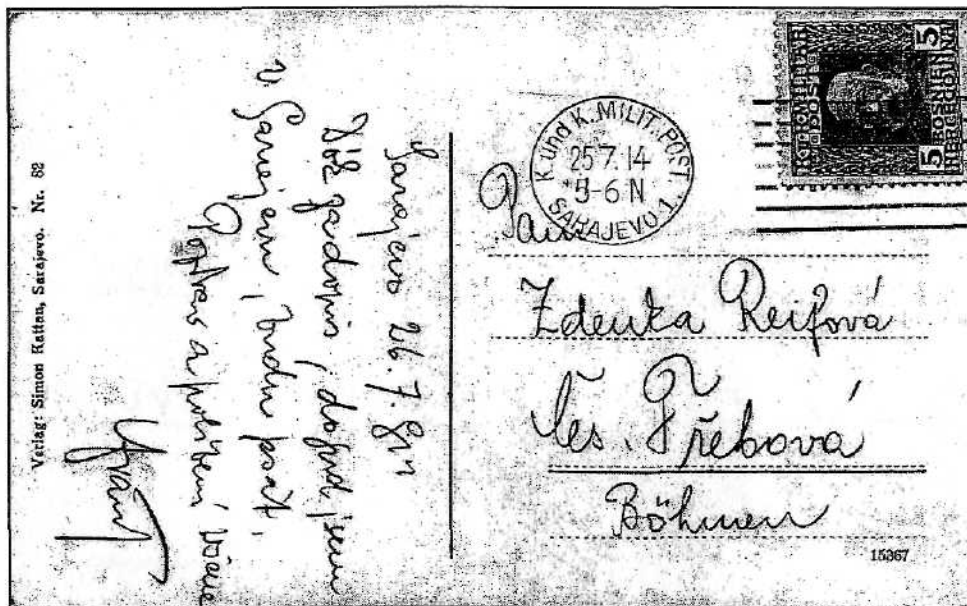 Verlag: Simon Kattan, Sarajevo. Nr. 62
Sarajevo 26. 7.
dopis, dokud jsem
v Sarajevu, budu psát.
Pozdrav a políbení
K. und K. MILIT. POST
25 7. 14
5-6 N
SARAJEVO 1.
K.u.K. MILITÄR
POST
5 BOSNIEN 5
HERCEGOVINA
Paní
Zdenka Reifová
Čes. Třebová
Böhmen
15367